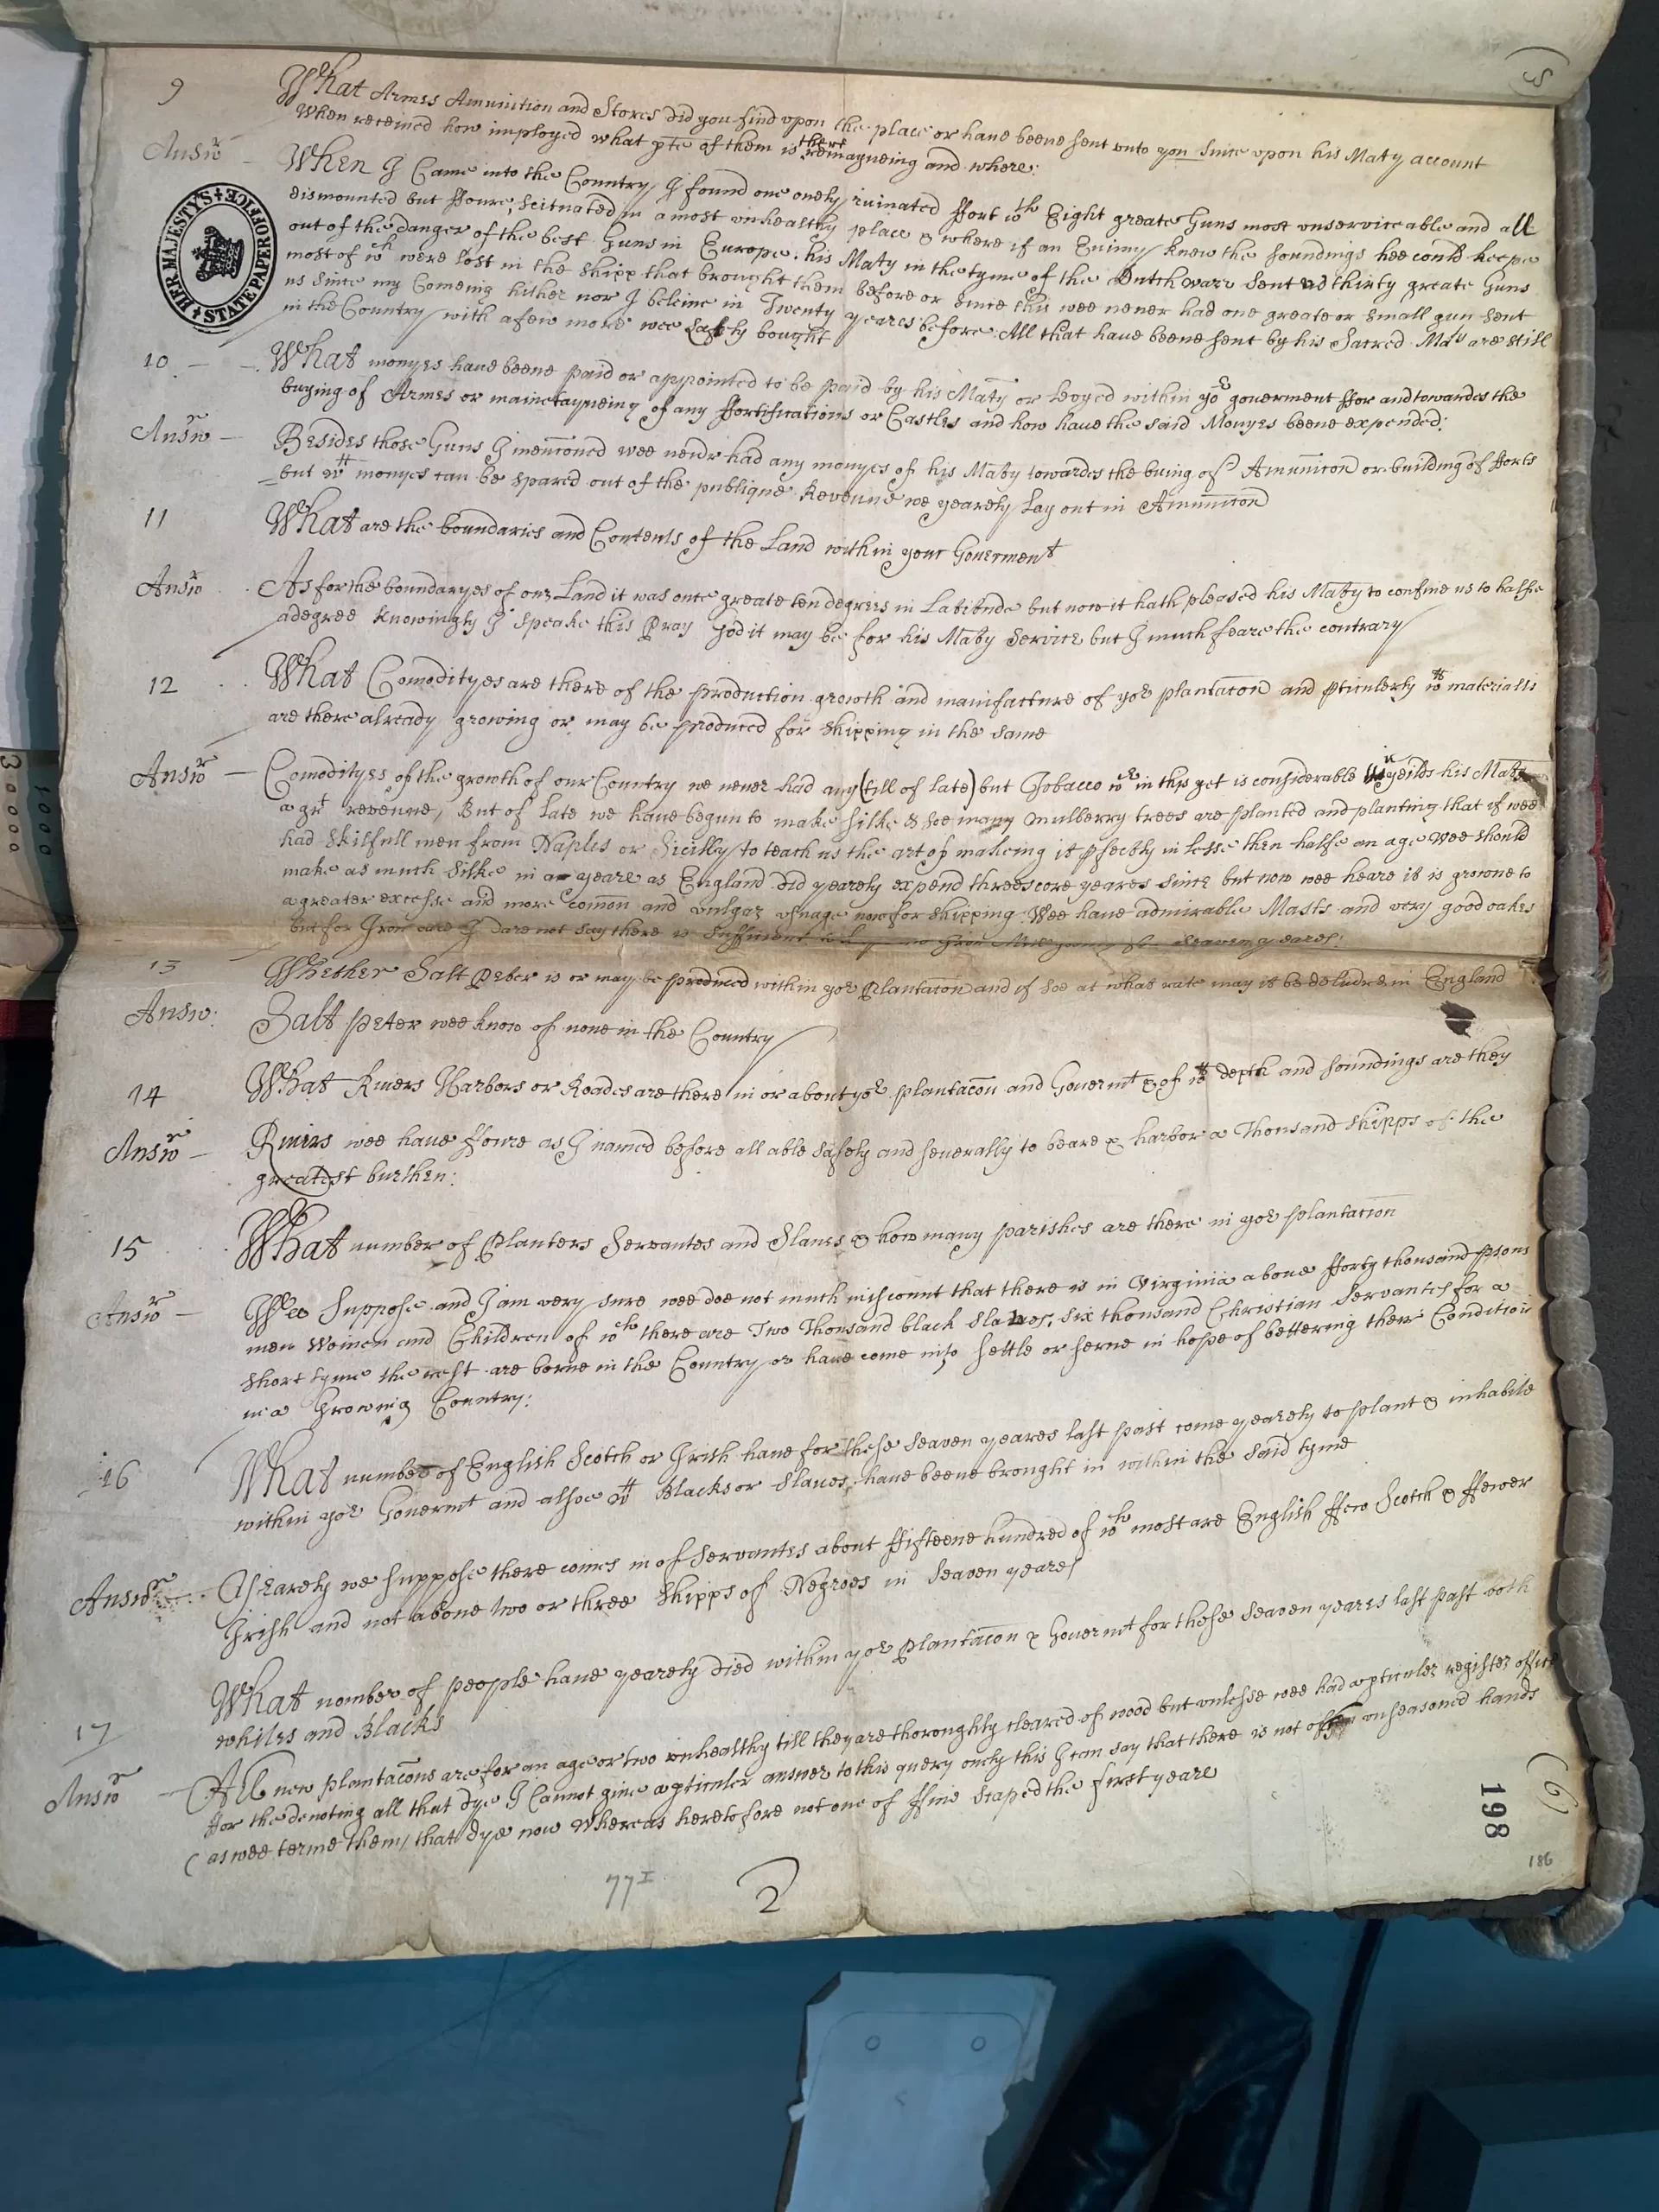 (3
9 What Armes Amunition and Stores did you find upon the place or haue beene sent unto you since upon his Maty account
When receiued how imployed what pte of them is there remayneing and where:
Answr – When I Came into the Country I found one onely ruinated ffort wth Eight greate Guns most unserviceable and all
dismounted but ffoure, scituated in a most unhealthy place & where if an Enimy knew the soundings hee could keepe
out of the danger of the best Guns in Europe. his Maty in the tyme of the Dutch warr sent us thirty greate Guns
most of wch were lost in the shipp that brought them before or since this wee neuer had one greate or small gun sent
us since my Comeing hither nor I beleiue in Twenty yeares before. All that haue beene sent by his Sacred Maty are still
in the Country with a few more wee lately bought
HER MAJESTY'S STATE PAPER OFFICE
10 – – What monyes haue beene paid or appointed to be paid by his Maty or Levyed within yor gouerment ffor and towardes the
buying of Armes or maintayneing of any ffortifications or Castles and how haue the said Monyes beene expended:
Answr – Besides those Guns I mentioned wee nevr had any monyes of his Maty towardes the buing of Amuniton or building of fforts
but wt monyes can be spared out of the publique Revenue we yearely lay out in Amuniton
11 What are the boundaries and Contents of the Land within your Gouerment
Answr As for the boundaryes of our Land it was once greate ten degrees in Latitude but now it hath pleased his Maty to confine us to halfe
a degree Knowingly I speake this Pray God it may be for his Maty Service but I much feare the contrary
12 What Comodityes are there of the production growth and manifacture of yor plantacon and pticulerly wt materialls
are there already growing or may be produced for shipping in the same
Answr – Comodityes of the growth of our Country we never had any (till of late) but Tobacco wch in this yet is considerable it yeilds his Maty
a grt revenue, But of late we haue begun to make silke & soe many Mulberry trees are planted and planting that if wee
had skilfull men from Naples or Sicilly to teach us the art of makeing it pfectly in lesse then halfe an age wee should
make as much silke in a yeare as England did yearely expend threescore yeares since but now wee heare it is growne to
a greater excesse and more comon and vulgar usuage now for shipping Wee haue admirable Masts and very good oakes
but for Iron oare I dare not say there is sufficient to keepe one Iron Mill goeing for seaven yeares:
13 Whether Salt Peter is or may be produced within yor Plantacon and if soe at what rate may it be deliured in England
Answ: Salt peter wee know of none in the Country
14 What Rivers Harbors or Roades are there in or about yor plantacon and Gouermt & of wt depth and soundings are they
Answr – Rivers wee haue ffoure as I named before all able safely and seuerally to beare & harbor a Thousand shipps of the
greatest burthen:
15 What number of Planters Servantes and Slaues & how many parishes are there in yor plantation
Answr – Wee suppose and I am very sure wee doe not much miscount that there is in Virginia aboue fforty thousand psons
men women and Children of wch there are Two Thousand black slaues, six thousand Christian servantes for a
short tyme the rest are borne in the Country or haue come in to settle or serue in hope of bettering their Condition
in a Growing Country:
16 What number of English Scotch or Irish haue for these seaven yeares last past come yearely to plant & inhabite
within yor Gouermt and alsoe wt Blacks or Slaues haue beene brought in within the said tyme
Answr – Yearely we suppose there comes in of servantes about ffifteene hundred of wch most are English ffew Scotch & ffewer
Irish and not aboue two or three shipps of Negroes in seaven yeares
17 What nomber of people haue yearely died within yor Plantacon & Gouermt for these seaven yeares last past both
whites and Blacks
Answr – All new plantacons are for an age or two unhealthy till they are thoroughly cleared of wood but unlesse wee had a pticuler register office
ffor the denoting all that dye I Cannot giue a pticuler answer to this query onely this I can say that there is not often unseasoned hands
(as wee terme them) that dye now whereas heretofore not one of ffive scaped the first yeare
(6)
198
186
77 I
2
3 0 0 0 0
1 0 0 0